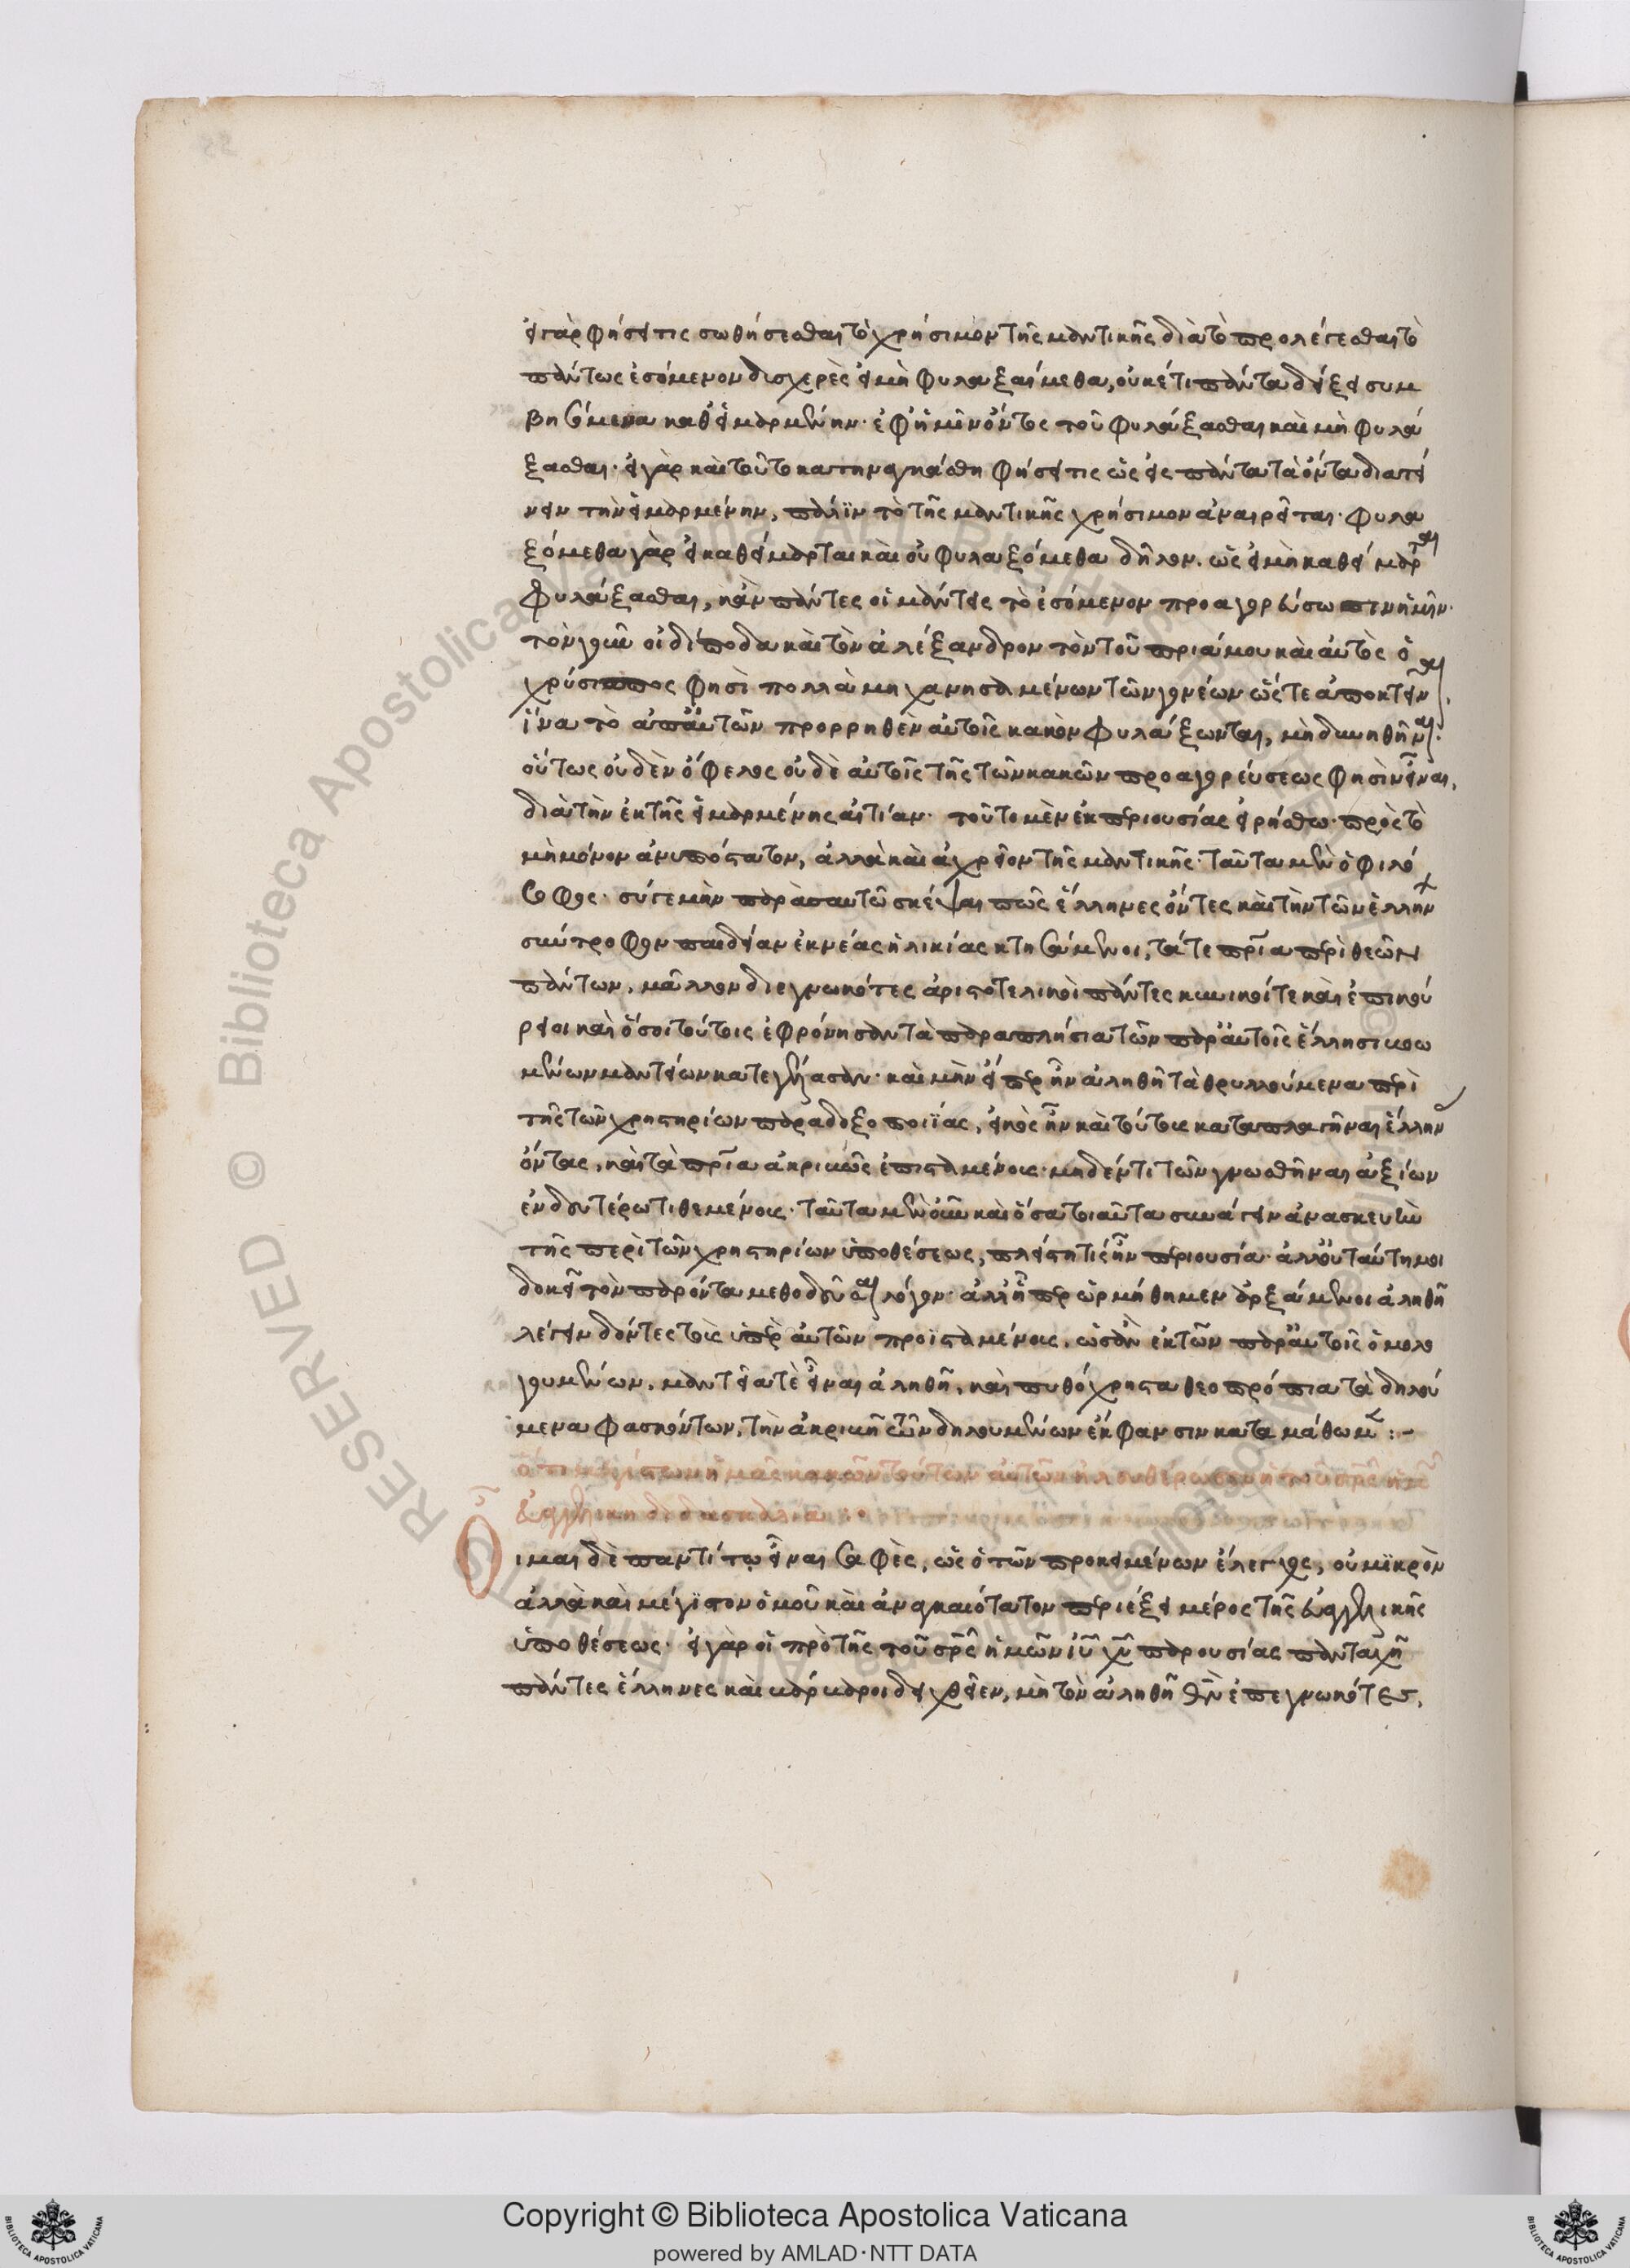 εἰ γὰρ φήσει τις σωθήσεσθαι τὸ χρήσιμον τῆς μαντικῆς διὰ τὸ προλέγεσθαι τὸ
πάντως ἐσόμενον δυσχερὲς εἰ μὴ φυλαξαίμεθα, οὐκέτι πάντα δείξει συμ
βησόμενα καθ' εἱμαρμένην· ἐφ' ἡμῖν ὄντος τοῦ φυλάξασθαι καὶ μὴ φυλά
ξασθαι· εἰ γὰρ καὶ τοῦτο κατηναγκάσθη φήσει τις ὡς εἰς πάντα τὰ ὄντα διατεί
νειν τὴν εἱμαρμένην, πάλϊν τὸ τῆς μαντικῆς χρήσιμον ἀναιρεῖται· φυλα
ξόμεθα γὰρ εἰ καθείμαρται καὶ οὐ φυλαξόμεθα δῆλον. ὡς εἰ μὴ καθείμαρται
φυλάξασθαι, κἂν πάντες οἱ μάντεις τὸ ἐσόμενον προαγορεύσωσιν ἡμῖν·
τὸν γοῦν οἰδίποδα καὶ τὸν ἀλέξανδρον τὸν τοῦ πριάμου καὶ αὐτὸς ὁ
χρύσιππος φησὶ πολλὰ μηχανησαμένων τῶν γονέων ὥστε ἀποκτεῖναι,
ἵνα τὸ ἀπ' αὐτῶν προρρηθὲν αὐτοῖς κακὸν φυλάξωνται, μὴ δυνηθῆναι·
οὕτως οὐδὲν ὄφελος οὐδὲ αὐτοῖς τῆς τῶν κακῶν προαγορεύσεως φησὶν εἶναι,
διὰ τὴν ἐκ τῆς εἱμαρμένης αἰτίαν· τοῦτο μὲν ἐκ περιουσίας εἰρήσθω· πρὸς τὸ
μὴ μόνον ἀνυπόστατον, ἀλλὰ καὶ ἀχρεῖον τῆς μαντικῆς· ταῦτα μὲν ὁ φιλό
σοφος· σύ γε μὴν παρὰ σαυτῶ σκέψαι πῶς ἕλληνες ὄντες καὶ τὴν τῶν ἑλλήν
σύντροφον παιδείαν ἐκ νέας ἡλικίας κτησάμενοι, τά τε πάτρια περὶ θεῶν
πάντων, μᾶλλον διεγνωκότες ἀριστοτελικοὶ πάντες κυνικοί τε καὶ ἐπικού
ρειοι καὶ ὅσοι τούτοις ἐφρόνησαν τὰ παραπλήσια τῶν παρ' αὐτοῖς ἕλλησι βοω
μένων μαντείων κατεγέλασαν· καὶ μὴν εἴπερ ἦν ἀληθῆ τὰ θρυλλούμενα περὶ
τῆς τῶν χρηστηρίων παραδοξοποιΐας, εἰκὸς ἦν καὶ τούτοις καταπλαγῆναι ἕλλην
ὄντας, καὶ τὰ πάτρια ἀκριβῶς ἐπισταμένοις· μηδέν τι τῶν γνωσθῆναι ἀξίων
ἐν δευτέρω τιθεμένοις· ταῦτα μὲν οὖν καὶ ὅσα τοιαῦτα συνάγειν ἀνασκευὴν
τῆς περὶ τῶν χρηστηρίων ὑποθέσεως, πλείστη τις ἦν περιουσία· ἀλλ' οὐ ταύτη μοι
δοκεῖ τὸν παρόντα μεθοδεῦσαι λόγον· ἀλλ' ᾗπερ ὡρμήθημεν ἀρξάμενοι ἀληθῆ
λέγειν δόντες τοῖς ὑπὲρ αὐτῶν προϊσταμένοις, ὡς ἂν ἐκ τῶν παρ' αὐτοῖς ὁμολο
γουμένων, μαντεῖά τε εἶναι ἀληθῆ, καὶ πυθόχρηστα θεοπρόπια τὰ δηλού
μενα φασκόντων, τὴν ἀκριβῆ τῶν δηλουμένων ἔκφανσιν καταμάθωμεν :-
εὐαγγελικὴ διδασκαλία
οἶμαι δὲ παντί τῳ εἶναι σαφὲς, ὡς ὁ τῶν προκειμένων ἔλεγχος, οὐ μϊκρὸν
ἀλλὰ καὶ μέγϊστον ὁμοῦ καὶ ἀναγκαιότατον περιέξει μέρος τῆς εὐαγγελικῆς
ὑποθέσεως· εἰ γὰρ οἱ πρὸ τῆς τοῦ σρς ἡμῶν ἰυ χυ παρουσίας πανταχῆ
πάντες ἕλληνες καὶ βάρβαροι δειχθεῖεν, μὴ τὸν ἀληθῆ θν ἐπεγνωκότες,